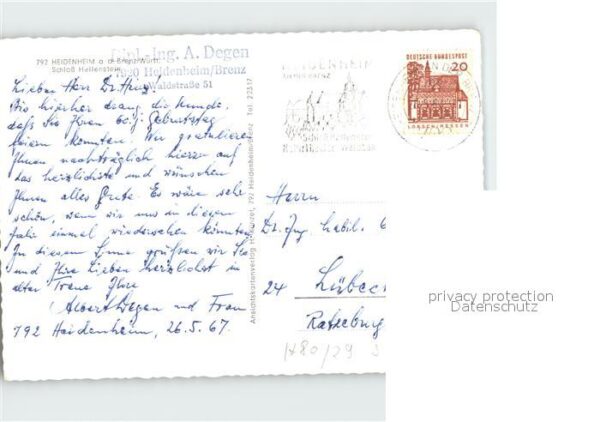 792 HEIDENHEIM a. d. Brenz/Württ.
Schloß Hellenstein
Dipl.-Ing. A. Degen
7920 Heidenheim/Brenz
Waldstraße 51
HEIDENHEIM
DEUTSCHE BUNDESPOST
20
LORSCH/HESSEN
Lieber Herr Dr. Heinz!
Bis hierher drang die Kunde,
daß Sie Ihren 60. Geburtstag
feiern konnten. Wir gratulieren
Ihnen nachträglich hierzu auf
das herzlichste und wünschen
Ihnen alles Gute. Es wäre sehr
schön, wenn wir uns in diesem
Jahr einmal wiedersehen könnten
In diesem Sinne grüßen wir Sie
und Ihre Lieben herzlichst in
alter Treue Ihre
Albert Degen und Frau
792 Heidenheim, 26.5.67.
Ansichtskartenverlag 792 Heidenheim/Brenz Tel. 22517
Herrn
Dr. Ing. habil.
24 Lübec
Ratzeburg
H80/29
privacy protection
Datenschutz